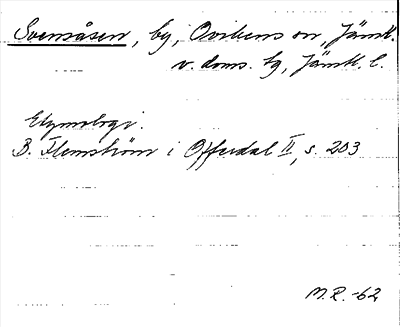 Svensåsen, by, Ovikens sn, Jämtl.
v. doms. tg, Jämtl. l.
Etymologi.
B. Flemström i Offerdal II, s. 203
M.R.-62